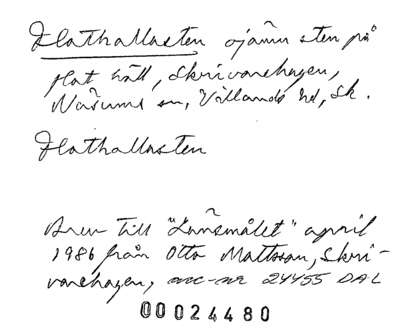 Flathallasten ojämn sten på
flat häll, Skrivarehagen,
Näsums sn, Villands hd, Sk.
Flathallasten
Brev till "Länsmålet" april
1986 från Otto Mattsson, Skri-
varehagen, acc-nr 24455 DAL
00024480